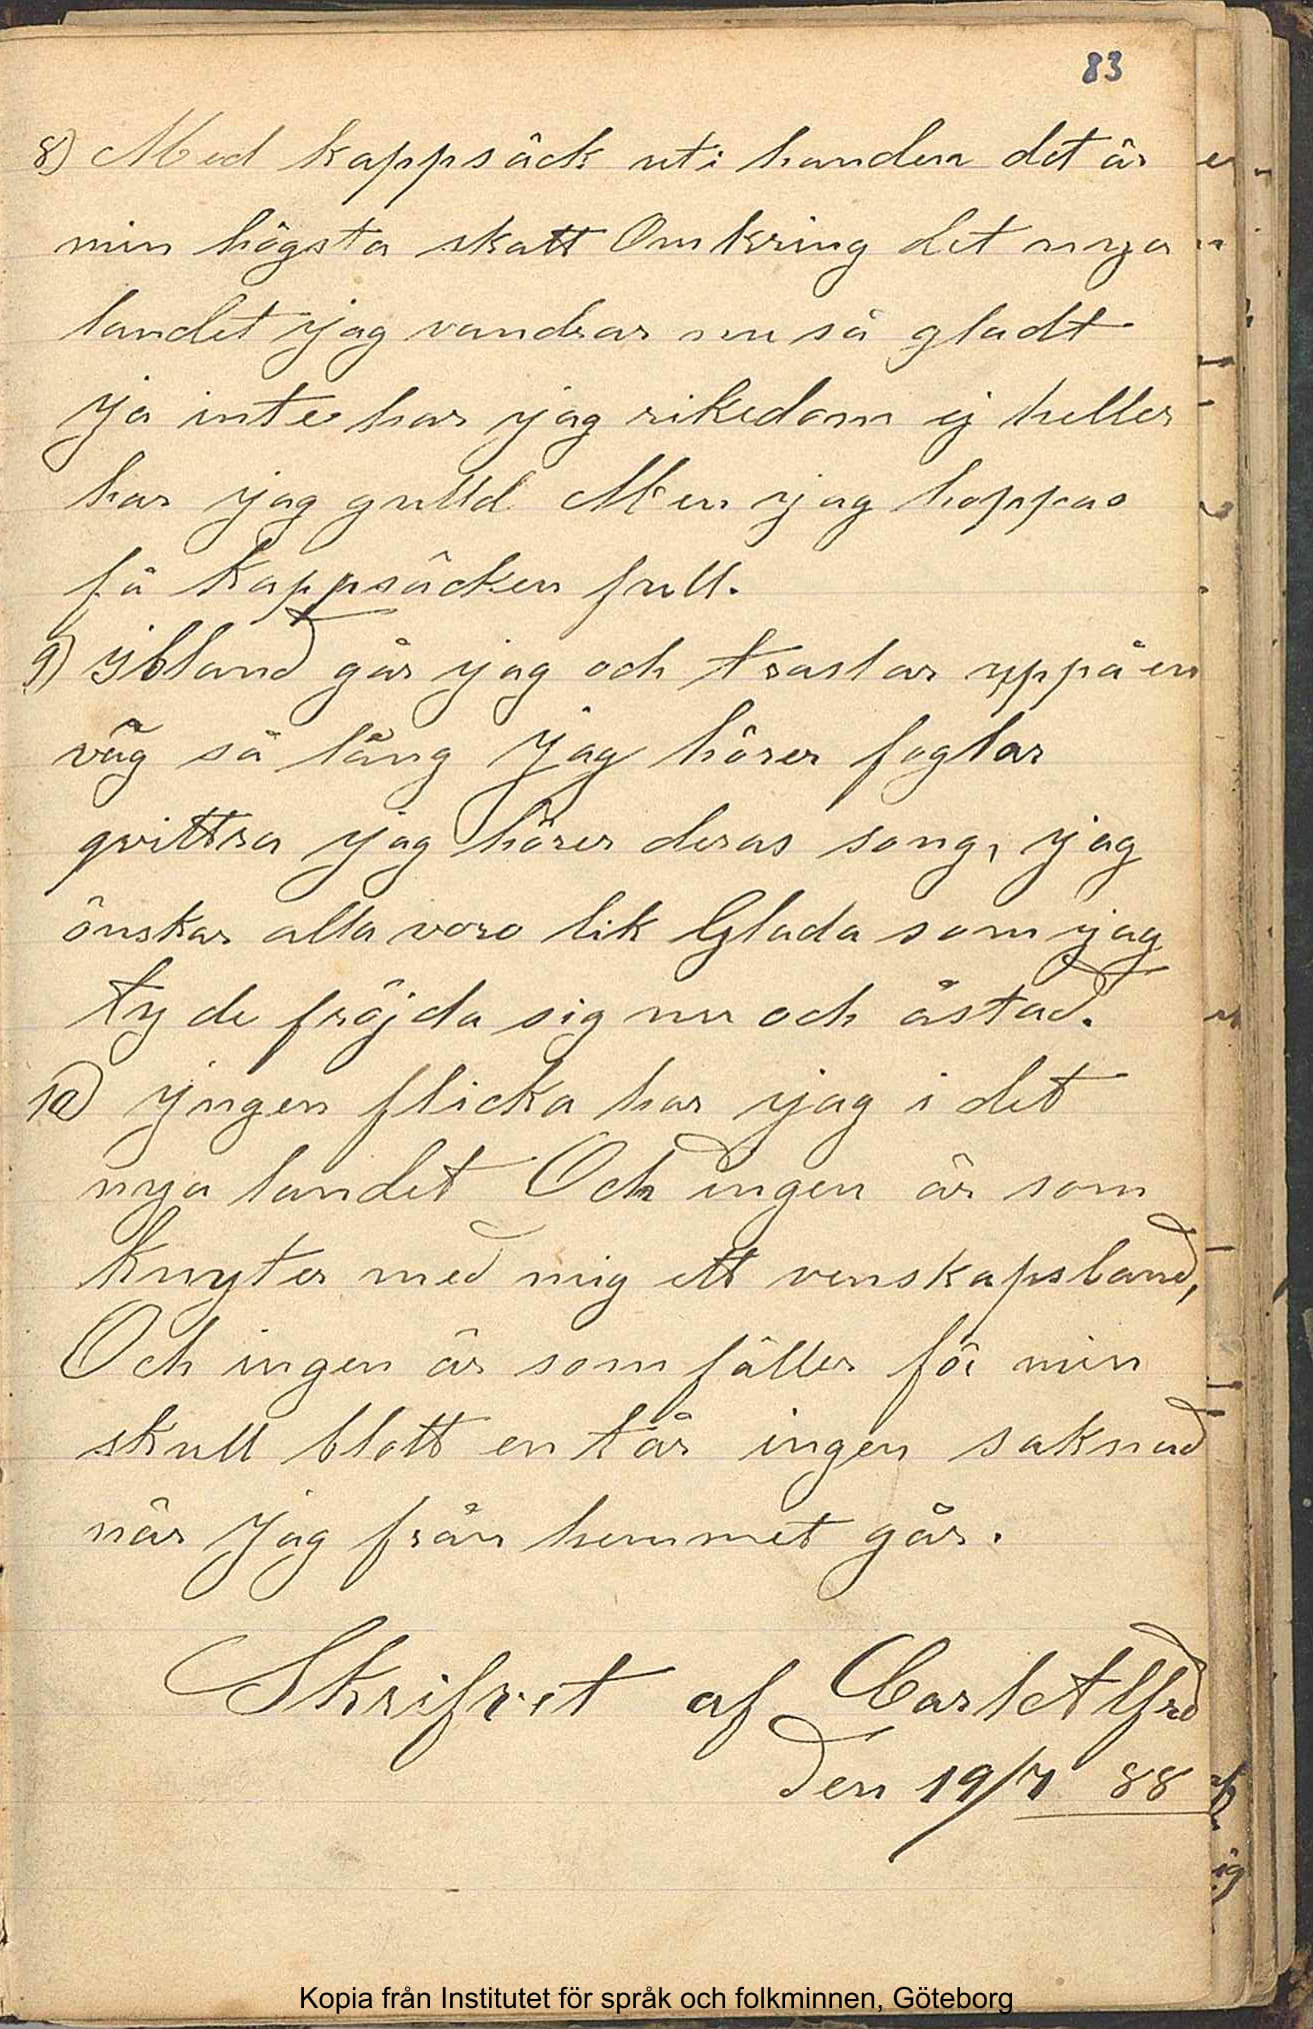 83
8) Med kappsäck uti handen det är
min högsta skatt Omkring det nya
landet jag vandrar nu så gladt
ja inte har jag rikedom ej heller
har jag gulld Men jag hoppas
få kappsäcken full.
9) Ibland går jag och traslar uppå en
väg så lång Jag hörer foglar
qvittra jag hörer deras song, jag
önskar alla voro lik Glada som jag
ty de fröjda sig nu och åstad.
10) Ingen flicka har jag i det
nya landet Och ingen är som
knyter med mig ett venskapsband,
Och ingen är som fäller för min
skull blott en tår ingen saknad
när Jag från hemmet går.
Skrifvet af Carl Alfrd
Den 19/7 88
Kopia från Institutet för språk och folkminnen, Göteborg